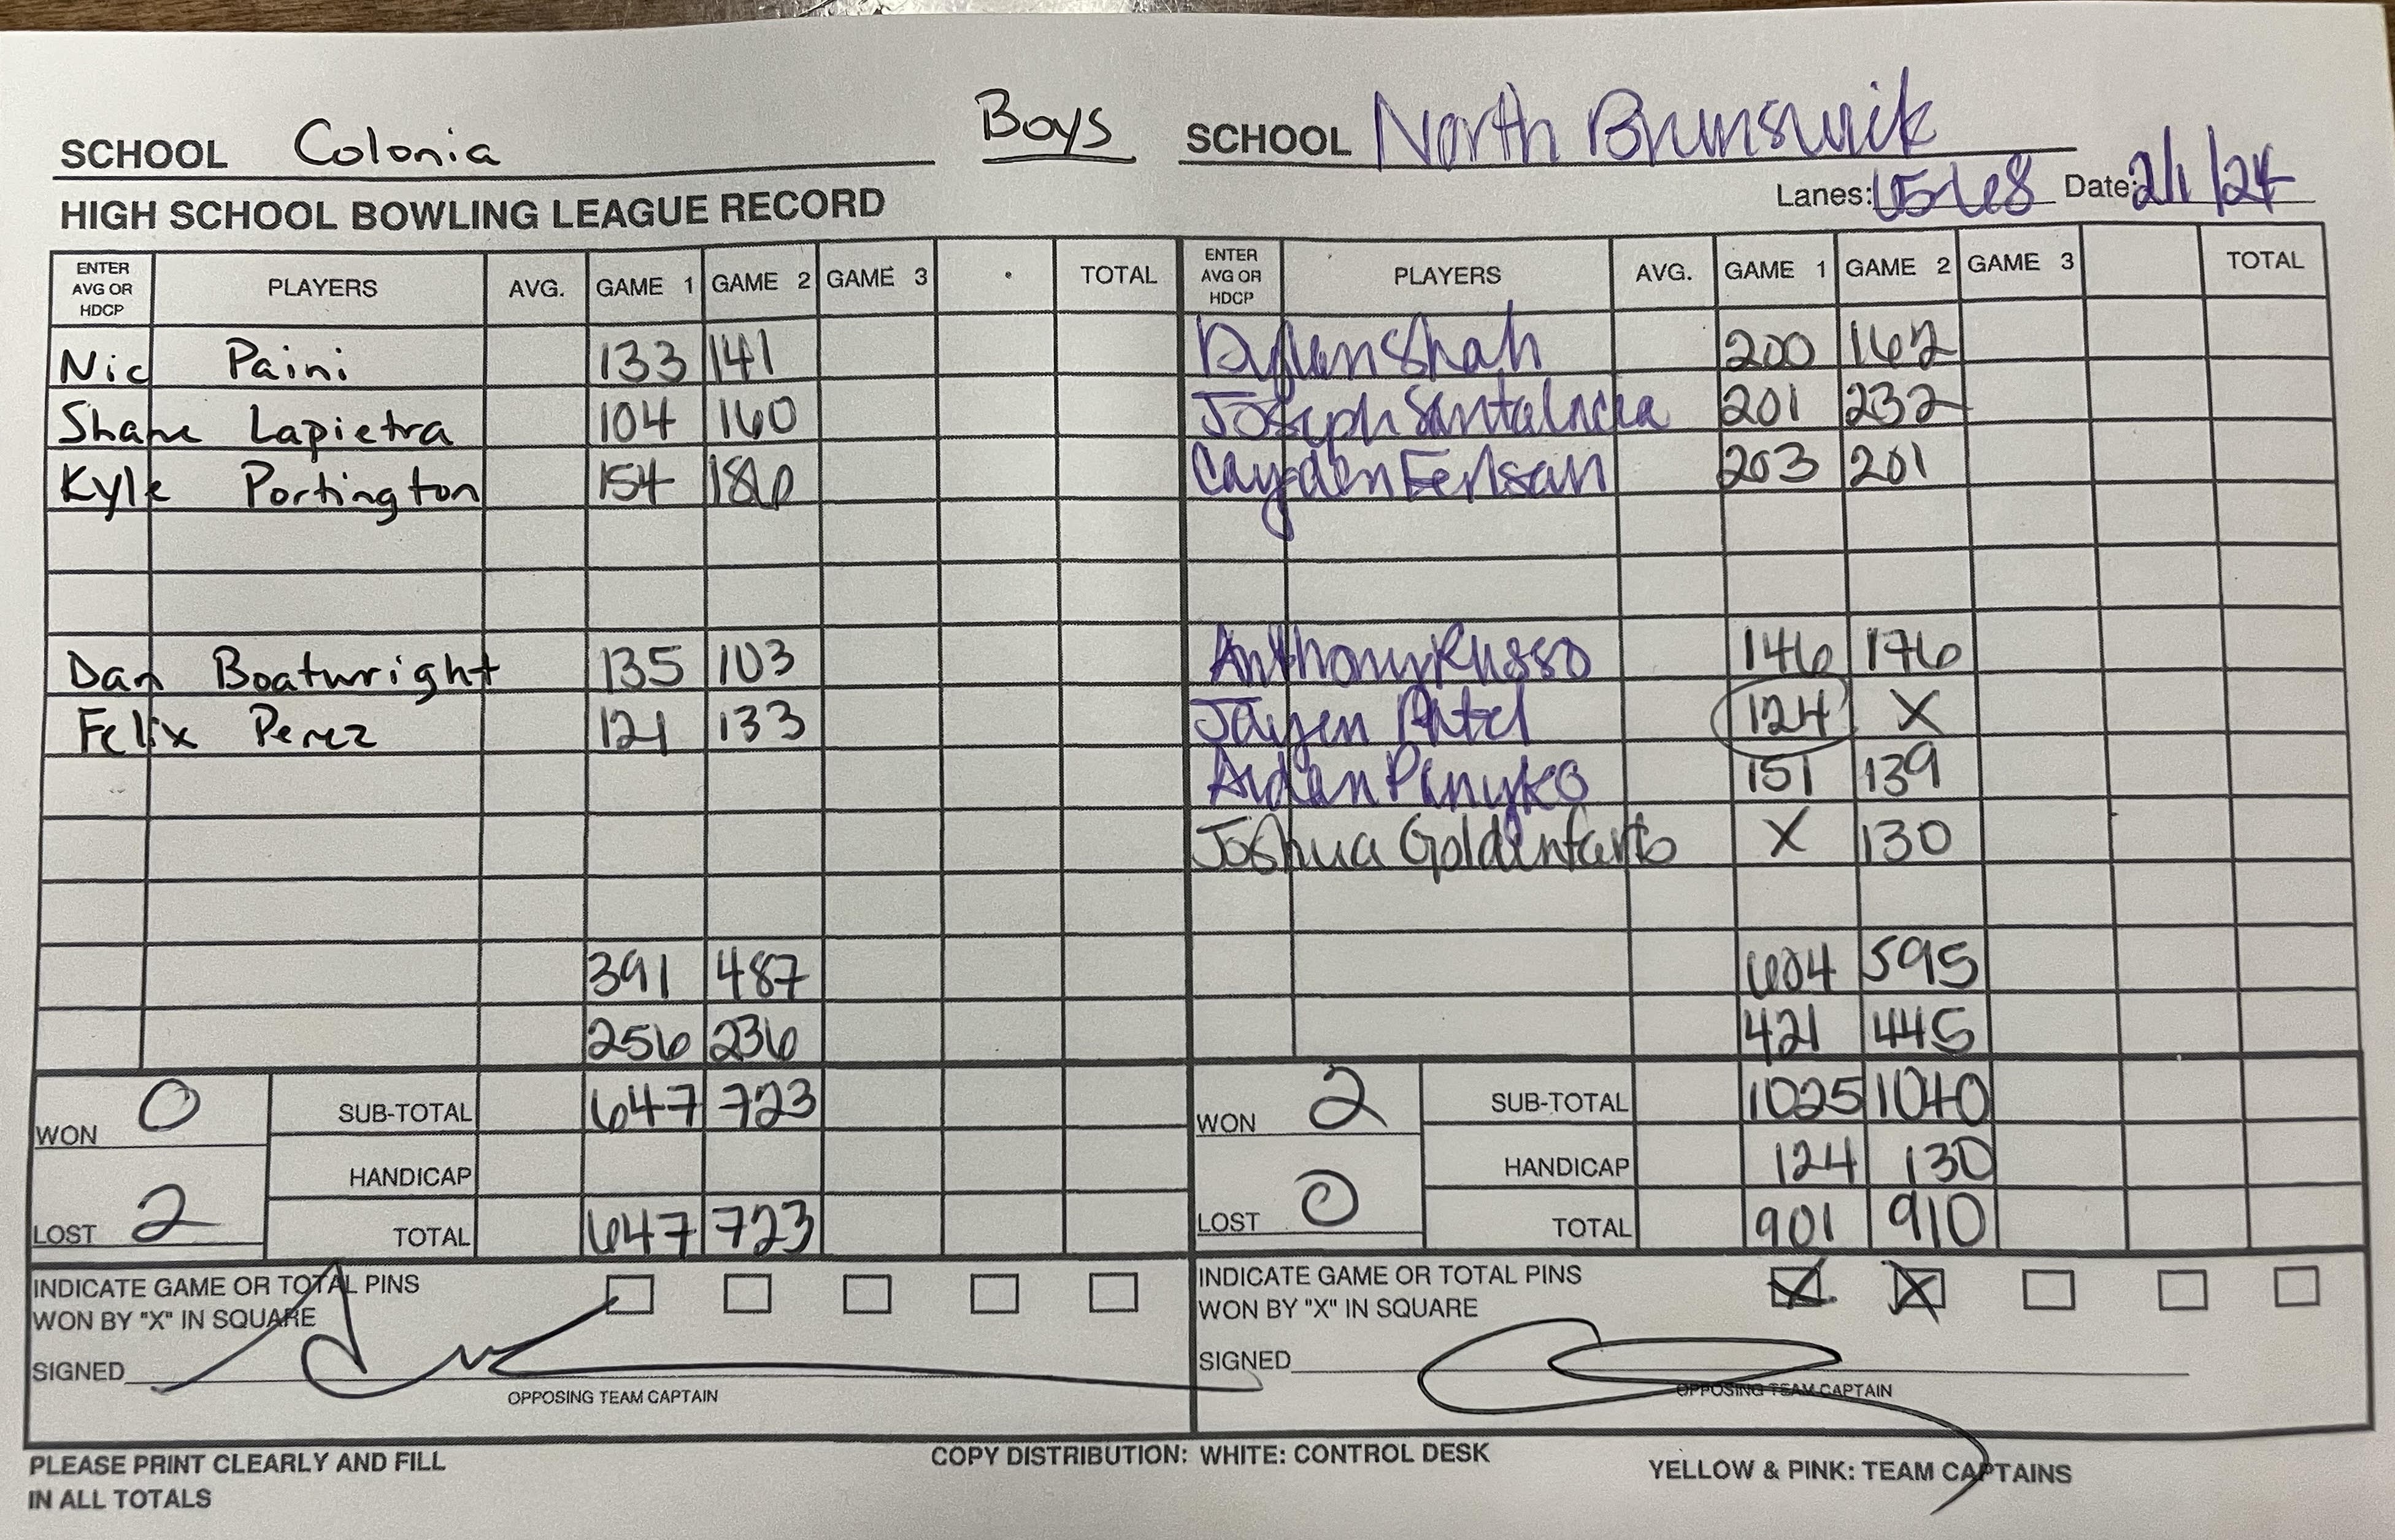 SCHOOL Colonia Boys SCHOOL North Brunswick
HIGH SCHOOL BOWLING LEAGUE RECORD Lanes: 65-68 Date: 2/1/24
ENTER AVG OR HDCP PLAYERS AVG. GAME 1 GAME 2 GAME 3 TOTAL ENTER AVG OR HDCP PLAYERS AVG. GAME 1 GAME 2 GAME 3 TOTAL
Nic Paini 133 141 Dylan Shah 200 162
Shane Lapietra 104 160 Joseph Santalucia 201 232
Kyle Portington 154 186 Cayden 203 201
Dan Boatwright 135 103 Anthony Russo 146 176
Felix Perez 121 133 Jayen Patel 124 X
Aidan Panyko 151 139
Joshua Goldenfarb X 130
391 487 604 595
256 236 421 445
WON 0 SUB-TOTAL 647 723 WON 2 SUB-TOTAL 1025 1040
HANDICAP HANDICAP 124 130
LOST 2 TOTAL 647 723 LOST 0 TOTAL 901 910
INDICATE GAME OR TOTAL PINS INDICATE GAME OR TOTAL PINS
WON BY "X" IN SQUARE WON BY "X" IN SQUARE X X
SIGNED SIGNED
OPPOSING TEAM CAPTAIN OPPOSING TEAM CAPTAIN
PLEASE PRINT CLEARLY AND FILL COPY DISTRIBUTION: WHITE: CONTROL DESK YELLOW & PINK: TEAM CAPTAINS
IN ALL TOTALS